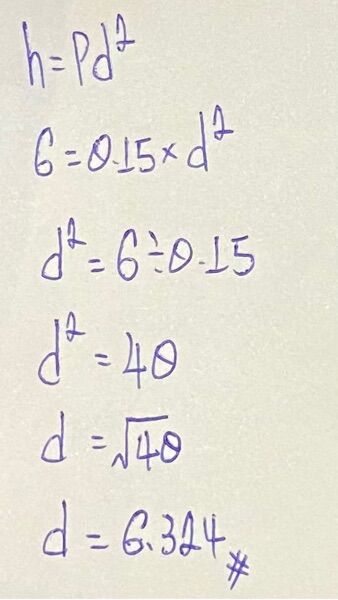 h=Pd²
6=0.15×d²
d²=6÷0.15
d²=40
d=√40
d=6.324#